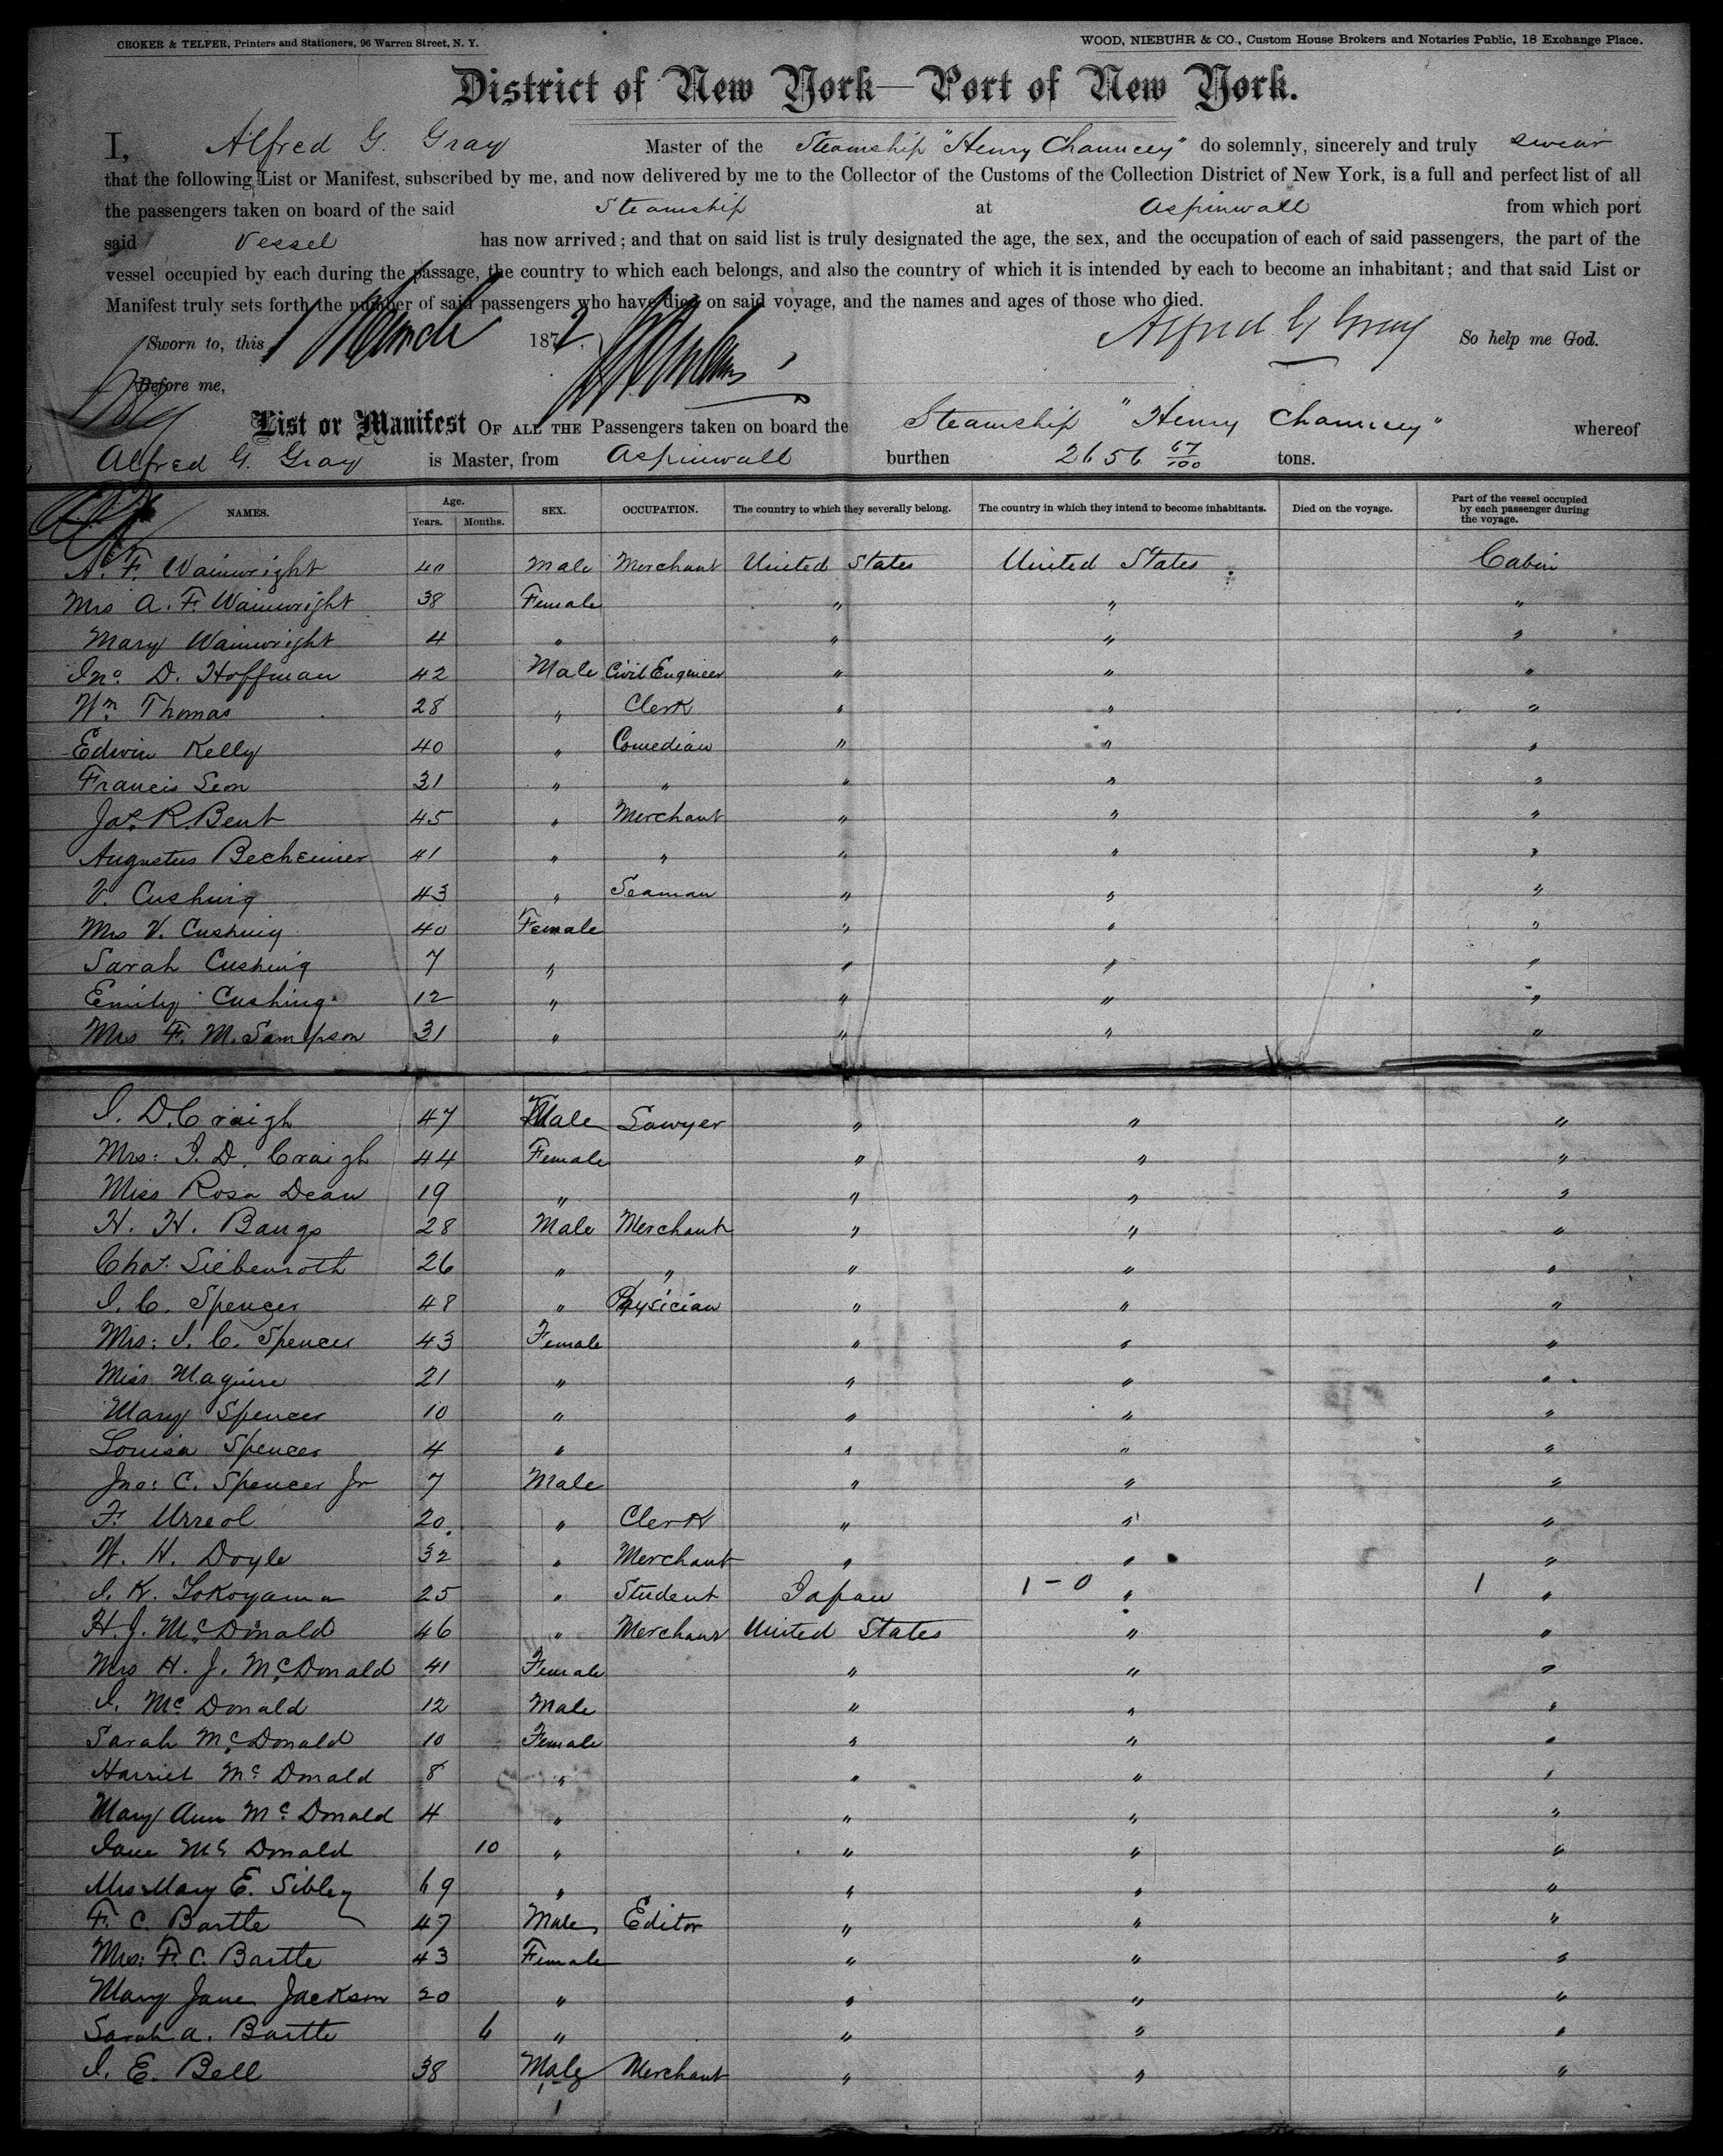 CROKER & TELFER, Printers and Stationers, 96 Warren Street, N. Y.
WOOD, NIEBUHR & CO., Custom House Brokers and Notaries Public, 18 Exchange Place.
District of New York—Port of New York.
I, Alfred G. Gray Master of the Steamship "Henry Chauncey" do solemnly, sincerely and truly swear
that the following List or Manifest, subscribed by me, and now delivered by me to the Collector of the Customs of the Collection District of New York, is a full and perfect list of all
the passengers taken on board of the said Steamship at Aspinwall from which port
said Vessel has now arrived; and that on said list is truly designated the age, the sex, and the occupation of each of said passengers, the part of the
vessel occupied by each during the passage, the country to which each belongs, and also the country of which it is intended by each to become an inhabitant; and that said List or
Manifest truly sets forth the number of said passengers who have died on said voyage, and the names and ages of those who died.
Sworn to, this 1 March 1872. Alfred G Gray So help me God.
Before me,
List or Manifest OF ALL THE Passengers taken on board the Steamship "Henry Chauncey" whereof
Alfred G. Gray is Master, from Aspinwall burthen 2656 67/100 tons.
NAMES. Age. Years. Months. SEX. OCCUPATION. The country to which they severally belong. The country in which they intend to become inhabitants. Died on the voyage. Part of the vessel occupied by each passenger during the voyage.
A. F. Wainwright 40 Male Merchant United States United States Cabin
Mrs A. F. Wainwright 38 Female " " "
Mary Wainwright 4 " " " "
Jno. D. Hoffman 42 Male Civil Engineer " " "
Wm Thomas 28 " Clerk " " "
Edwin Kelly 40 " Comedian " " "
Francis Leon 31 " " " " "
Jas. R. Bent 45 " Merchant " " "
Augustus Becheimer 41 " " " " "
V. Cushing 43 " Seaman " " "
Mrs V. Cushing 40 Female " " "
Sarah Cushing 7 " " " "
Emily Cushing 12 " " " "
Mrs F. M. Sampson 31 " " " "
I. D. Craigh 47 Male Sawyer " " "
Mrs: I. D. Craigh 44 Female " " "
Miss Rosa Dean 19 " " " "
H. H. Bangs 28 Male Merchant " " "
Chas. Siebenroth 26 " " " " "
I. C. Spencer 48 " Physician " " "
Mrs: I. C. Spencer 43 Female " " "
Miss Maguire 21 " " " "
Mary Spencer 10 " " " "
Louisa Spencer 4 " " " "
Jno: C. Spencer Jr 7 Male " " "
F. Urreol 20 " Clerk " " "
W. H. Doyle 32 " Merchant " " "
I. K. Yokoyama 25 " Student Japan 1-0 " 1 "
H. J. McDonald 46 " Merchant United States " "
Mrs H. J. McDonald 41 Female " " "
I. McDonald 12 Male " " "
Sarah McDonald 10 Female " " "
Harriet McDonald 8 " " " "
Mary Ann McDonald 4 " " " "
Jane McDonald 10 " " " "
Mrs Mary E. Sibley 69 " " " "
F. C. Bartle 47 Male Editor " " "
Mrs: F. C. Bartle 43 Female " " "
Mary Jane Jackson 20 " " " "
Sarah A. Bartle 6 " " " "
I. E. Bell 38 Male Merchant " " "
1